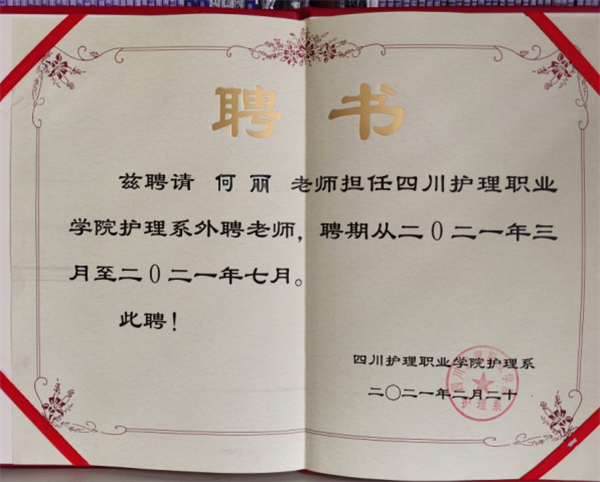 聘书
兹聘请 何丽 老师担任四川护理职业
学院护理系外聘老师，聘期从二〇二一年三
月至二〇二一年七月。
此聘！
四川护理职业学院护理系
二〇二一年二月二十
护理系